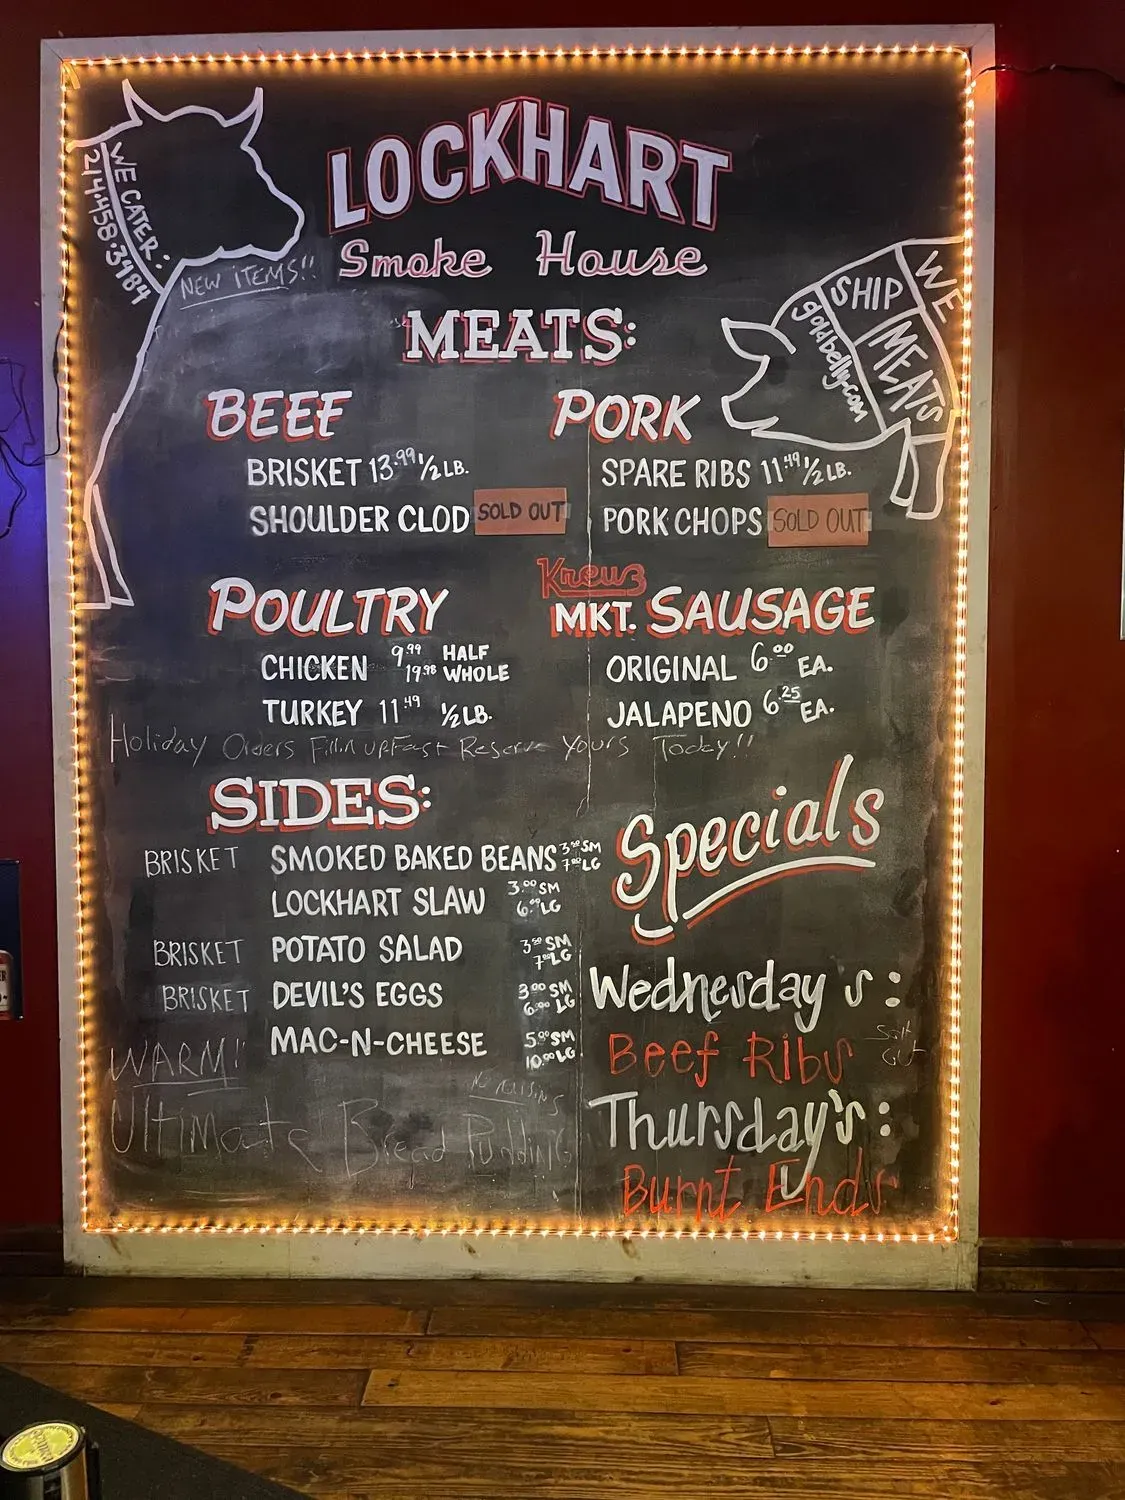 LOCKHART
Smoke House
WE CATER:
214.458.3484
NEW ITEMS!!
WE
SHIP
MEATS
goldbelly.com
MEATS:
BEEF
BRISKET 13.99 1/2 LB.
SHOULDER CLOD SOLD OUT
PORK
SPARE RIBS 11.49 1/2 LB.
PORK CHOPS SOLD OUT
POULTRY
CHICKEN 9.99 HALF
19.98 WHOLE
TURKEY 11.49 1/2 LB.
Kreuz
MKT. SAUSAGE
ORIGINAL 6.00 EA.
JALAPENO 6.25 EA.
Holiday Orders Fillin up Fast Reserve Yours Today!!
SIDES:
BRISKET SMOKED BAKED BEANS SM
LG
LOCKHART SLAW 3.00 SM
6.00 LG
BRISKET POTATO SALAD SM
LG
BRISKET DEVIL'S EGGS 3.00 SM
6.00 LG
MAC-N-CHEESE SM
10.00 LG
WARM!!
NO RAISINS
Ultimate Bread Pudding
Specials
Wednesday's:
Beef Ribs Sold
Out
Thursday's:
Burnt Ends